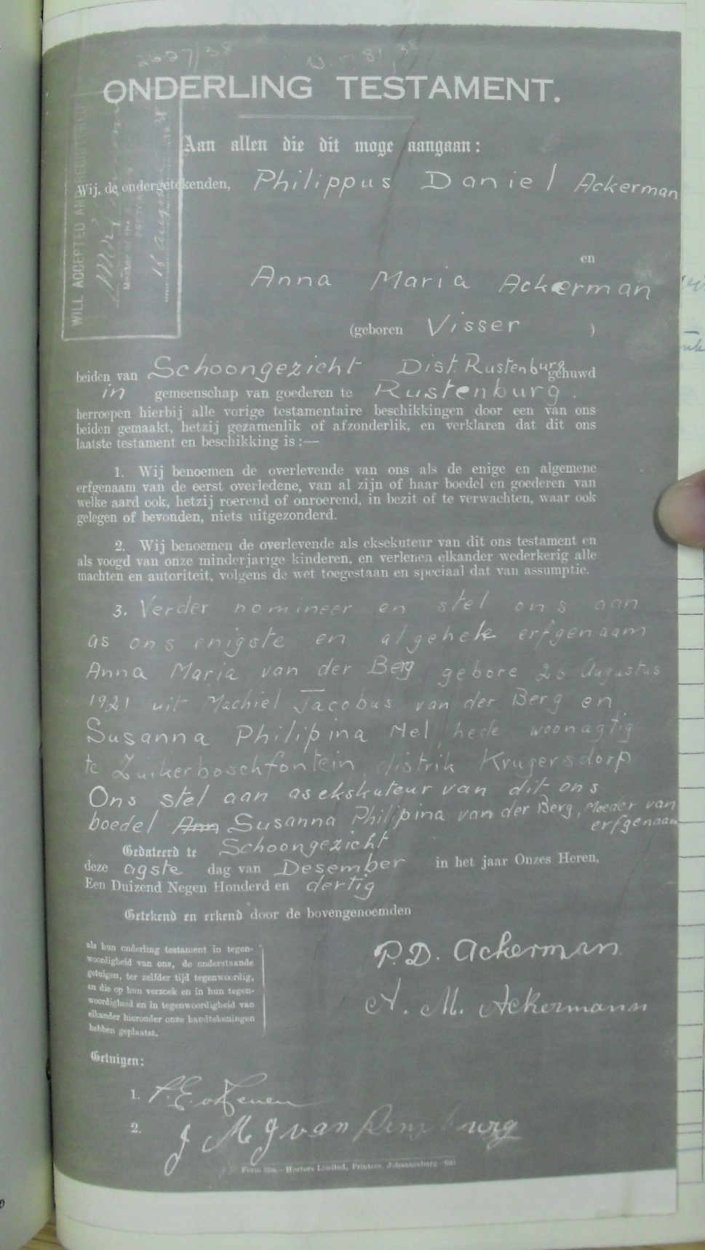 2627/38
ONDERLING TESTAMENT.
Aan allen die dit moge aangaan:
Wij, de ondergetekenden, Philippus Daniel Ackerman
en
Anna Maria Ackerman
(geboren Visser )
WILL ACCEPTED AND REGISTERED
beiden van Schoongezicht Dist. Rustenburg gehuwd
in gemeenschap van goederen te Rustenburg.
herroepen hierbij alle vorige testamentaire beschikkingen door een van ons
beiden gemaakt, hetzij gezamenlik of afzonderlik, en verklaren dat dit ons
laatste testament en beschikking is:—
1. Wij benoemen de overlevende van ons als de enige en algemene
erfgenaam van de eerst overledene, van al zijn of haar boedel en goederen van
welke aard ook, hetzij roerend of onroerend, in bezit of te verwachten, waar ook
gelegen of bevonden, niets uitgezonderd.
2. Wij benoemen de overlevende als eksekuteur van dit ons testament en
als voogd van onze minderjarige kinderen, en verlenen elkander wederkerig alle
machten en autoriteit, volgens de wet toegestaan en speciaal dat van assumptie.
3. Verder nomineer en stel ons aan
as ons enigste en algehele erfgenaam
Anna Maria van der Berg gebore 26 Augustus
1921 uit Machiel Jacobus van der Berg en
Susanna Philipina Nel, hede woonagtig
te Zuikerboschfontein distrik Krugersdorp
Ons stel aan as ekskuteur van dit ons
boedel Ann Susanna Philipina van der Berg, Moeder van
erfgenaam
Gedateerd te Schoongezicht
deze agste dag van Desember in het jaar Onzes Heren,
Een Duizend Negen Honderd en dertig
Getekend en erkend door de bovengenoemden
als hun onderling testament in tegen-
woordigheid van ons, de onderstaande
getuigen, ter zelfder tijd tegenwoordig,
en die op hun verzoek en in hun tegen-
woordigheid en in tegenwoordigheid van
elkander hieronder onze handtekeningen
hebben geplaatst.
P.D. Ackerman
A. M. Ackermann
Getuigen:
1.
2. J M J van Rensburg
Hortors Limited, Printers, Johannesburg